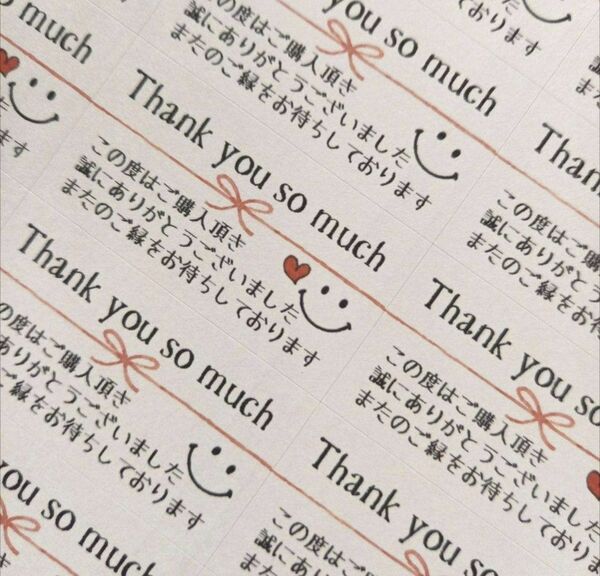 so much
ございました
しております
you so much
この度はご購入頂き
誠にありがとうございました
またのご縁をお待ちしております
Thank you so much
この度はご購入頂き
誠にありがとうございました
またのご縁をお待ちしております
Thank
この度はご
誠にあり
またのご縁
Thank you so much
この度はご購入頂き
ありがとうございました
ご縁をお待ちしております
Thank you so
この度はご購入頂き
誠にありがとうございました
またのご縁をお待ちしております
you so much
Thank you so
この度はご購入頂き
誠にありがとう
またのご縁をお